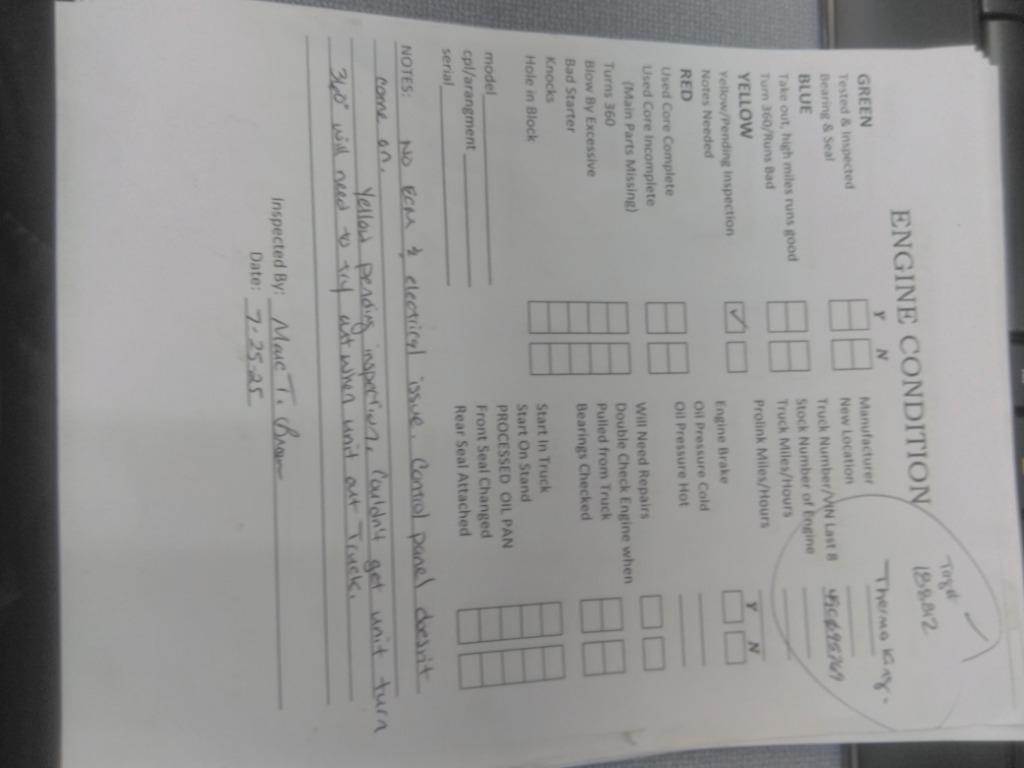 Tag#
188802
ENGINE CONDITION
Y N
GREEN
Tested & Inspected
Bearing & Seal
BLUE
Take out, high miles runs good
Turn 360/Runs Bad
YELLOW
Yellow/Pending Inspection
Notes Needed
RED
Used Core Complete
Used Core Incomplete
(Main Parts Missing)
Turns 360
Blow By Excessive
Bad Starter
Knocks
Hole in Block
Manufacturer Thermo King
New Location
Truck Number/VIN Last 8
Stock Number of Engine
Truck Miles/Hours
Prolink Miles/Hours
Y N
Engine Brake
Oil Pressure Cold
Oil Pressure Hot
Will Need Repairs
Double Check Engine when
Pulled from Truck
Bearings Checked
Start In Truck
Start On Stand
PROCESSED OIL PAN
Front Seal Changed
Rear Seal Attached
model
cpl/arangment
serial
NOTES: No ECM & electrical issue. Control panel doesnt
come on. Yellow pending inspection. Couldn't get unit turn
360 will need to try when unit Truck.
Inspected By: Marc T.
Date: 7-25-25